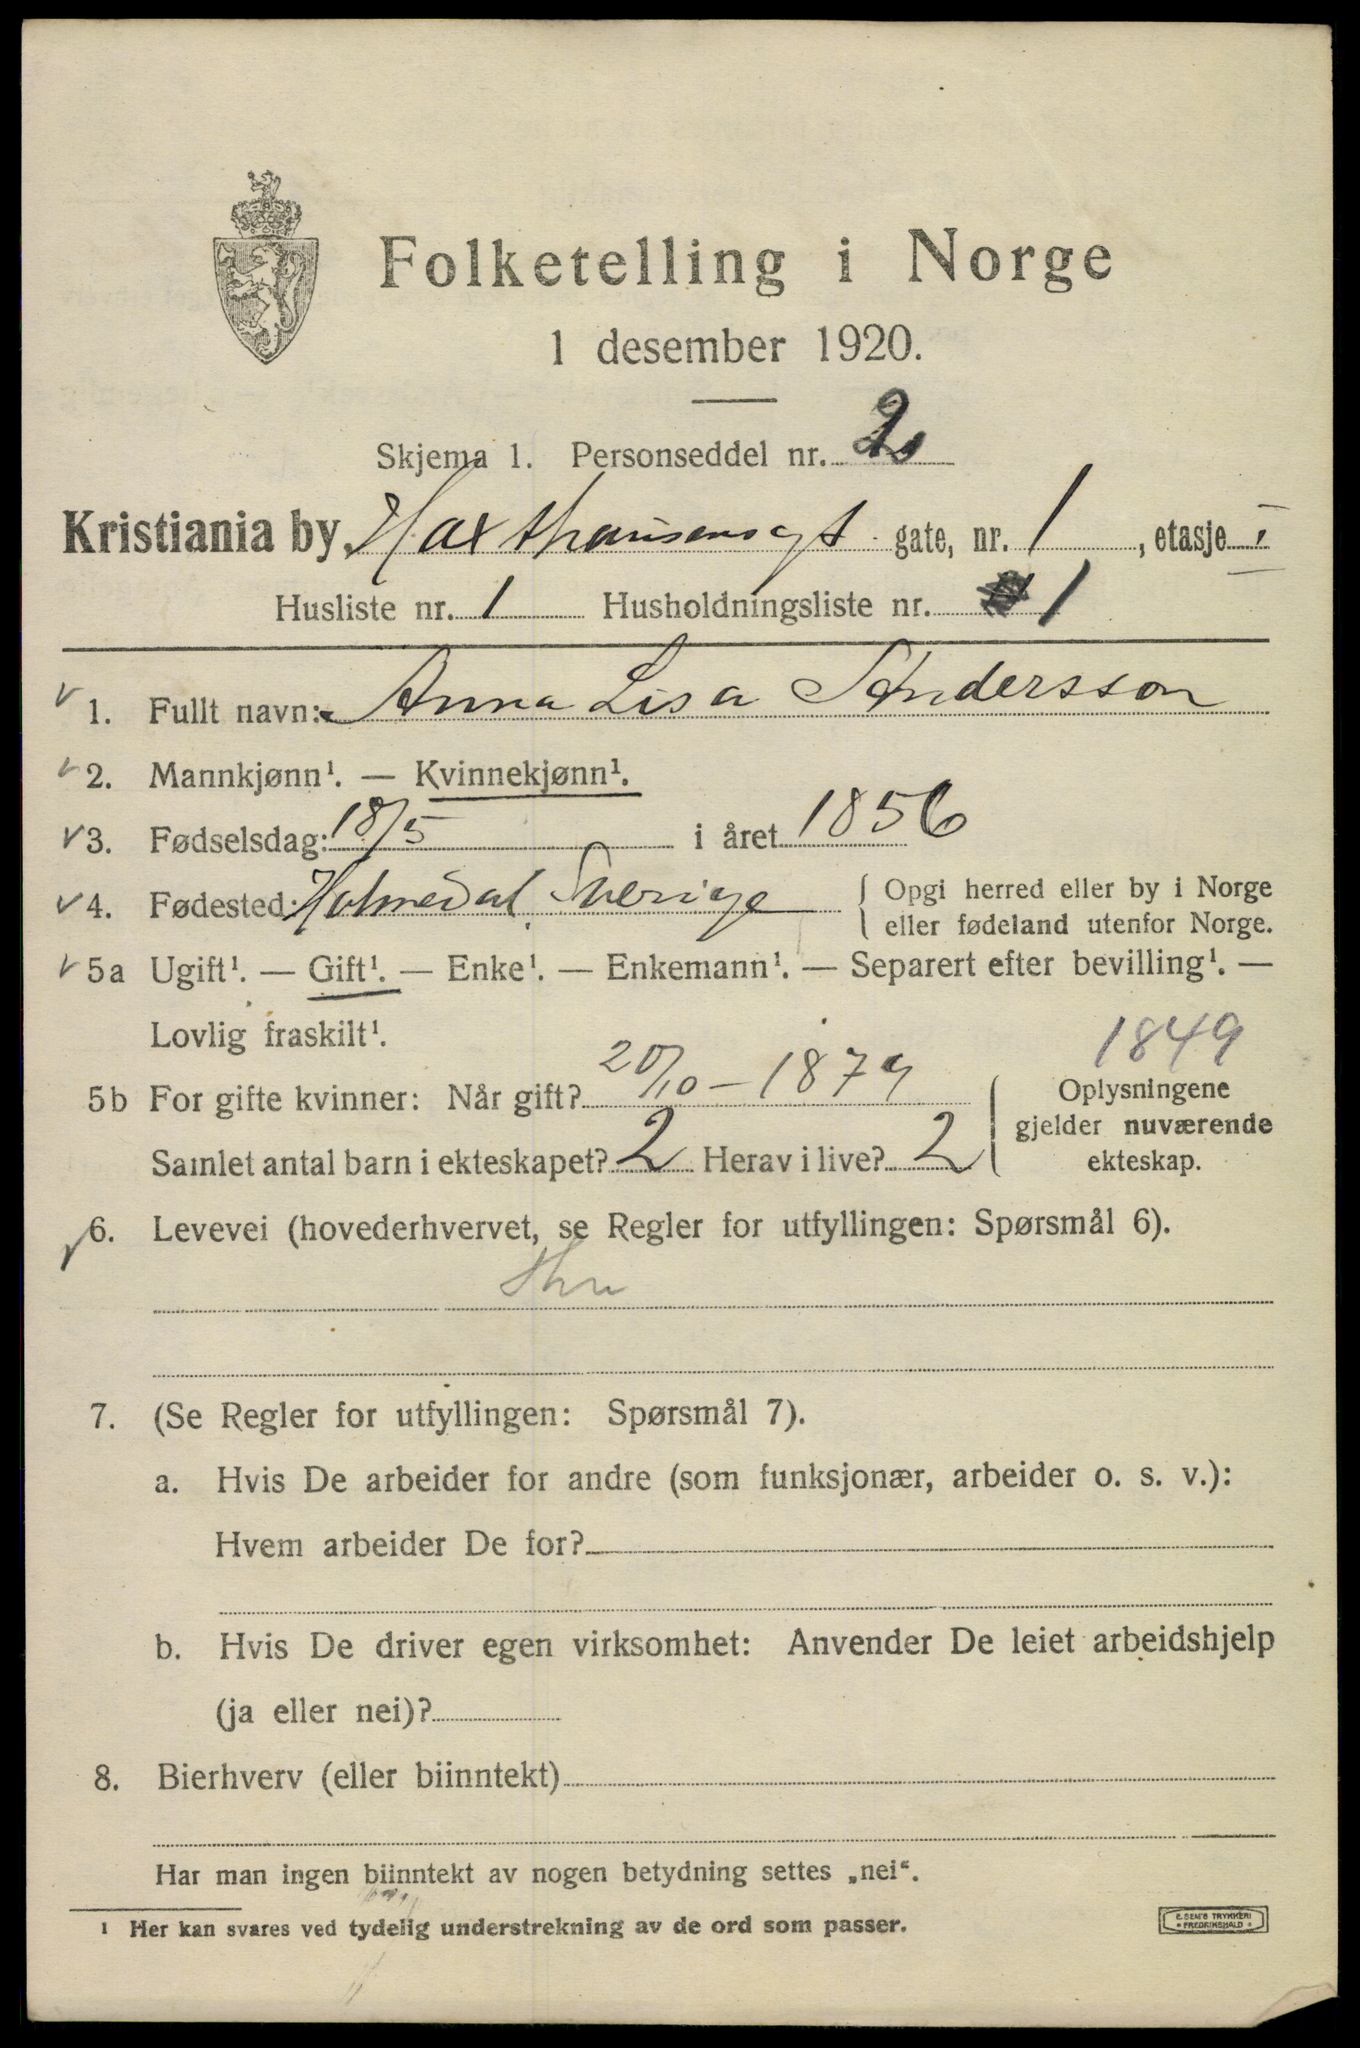 Folketelling i Norge
1 desember 1920.
Skjema 1. Personseddel nr. 2
Kristiania by, Haxthausensgt. gate, nr. 1, etasje I
Husliste nr. 1 Husholdningsliste nr. 1
1. Fullt navn: Anna Lisa Andersson
2. Mannkjønn¹. — Kvinnekjønn¹.
3. Fødselsdag: 18/5 i året 1856
4. Fødested: Holmedal, Sverige { Opgi herred eller by i Norge
eller fødeland utenfor Norge.
5a Ugift¹. — Gift¹. — Enke¹. — Enkemann¹. — Separert efter bevilling¹. —
Lovlig fraskilt¹.
1849
5b For gifte kvinner: Når gift? 20/10 – 1879
Samlet antal barn i ekteskapet? 2 Herav i live? 2
Oplysningene
gjelder nuværende
ekteskap.
6. Levevei (hovederhvervet, se Regler for utfyllingen: Spørsmål 6).
7. (Se Regler for utfyllingen: Spørsmål 7).
a. Hvis De arbeider for andre (som funksjonær, arbeider o. s. v.):
Hvem arbeider De for?
b. Hvis De driver egen virksomhet: Anvender De leiet arbeidshjelp
(ja eller nei)?
8. Bierhverv (eller biinntekt)
Har man ingen biinntekt av nogen betydning settes „nei“.
¹ Her kan svares ved tydelig understrekning av de ord som passer.
E. SEM'S TRYKKERI
• FREDRIKSHALD •